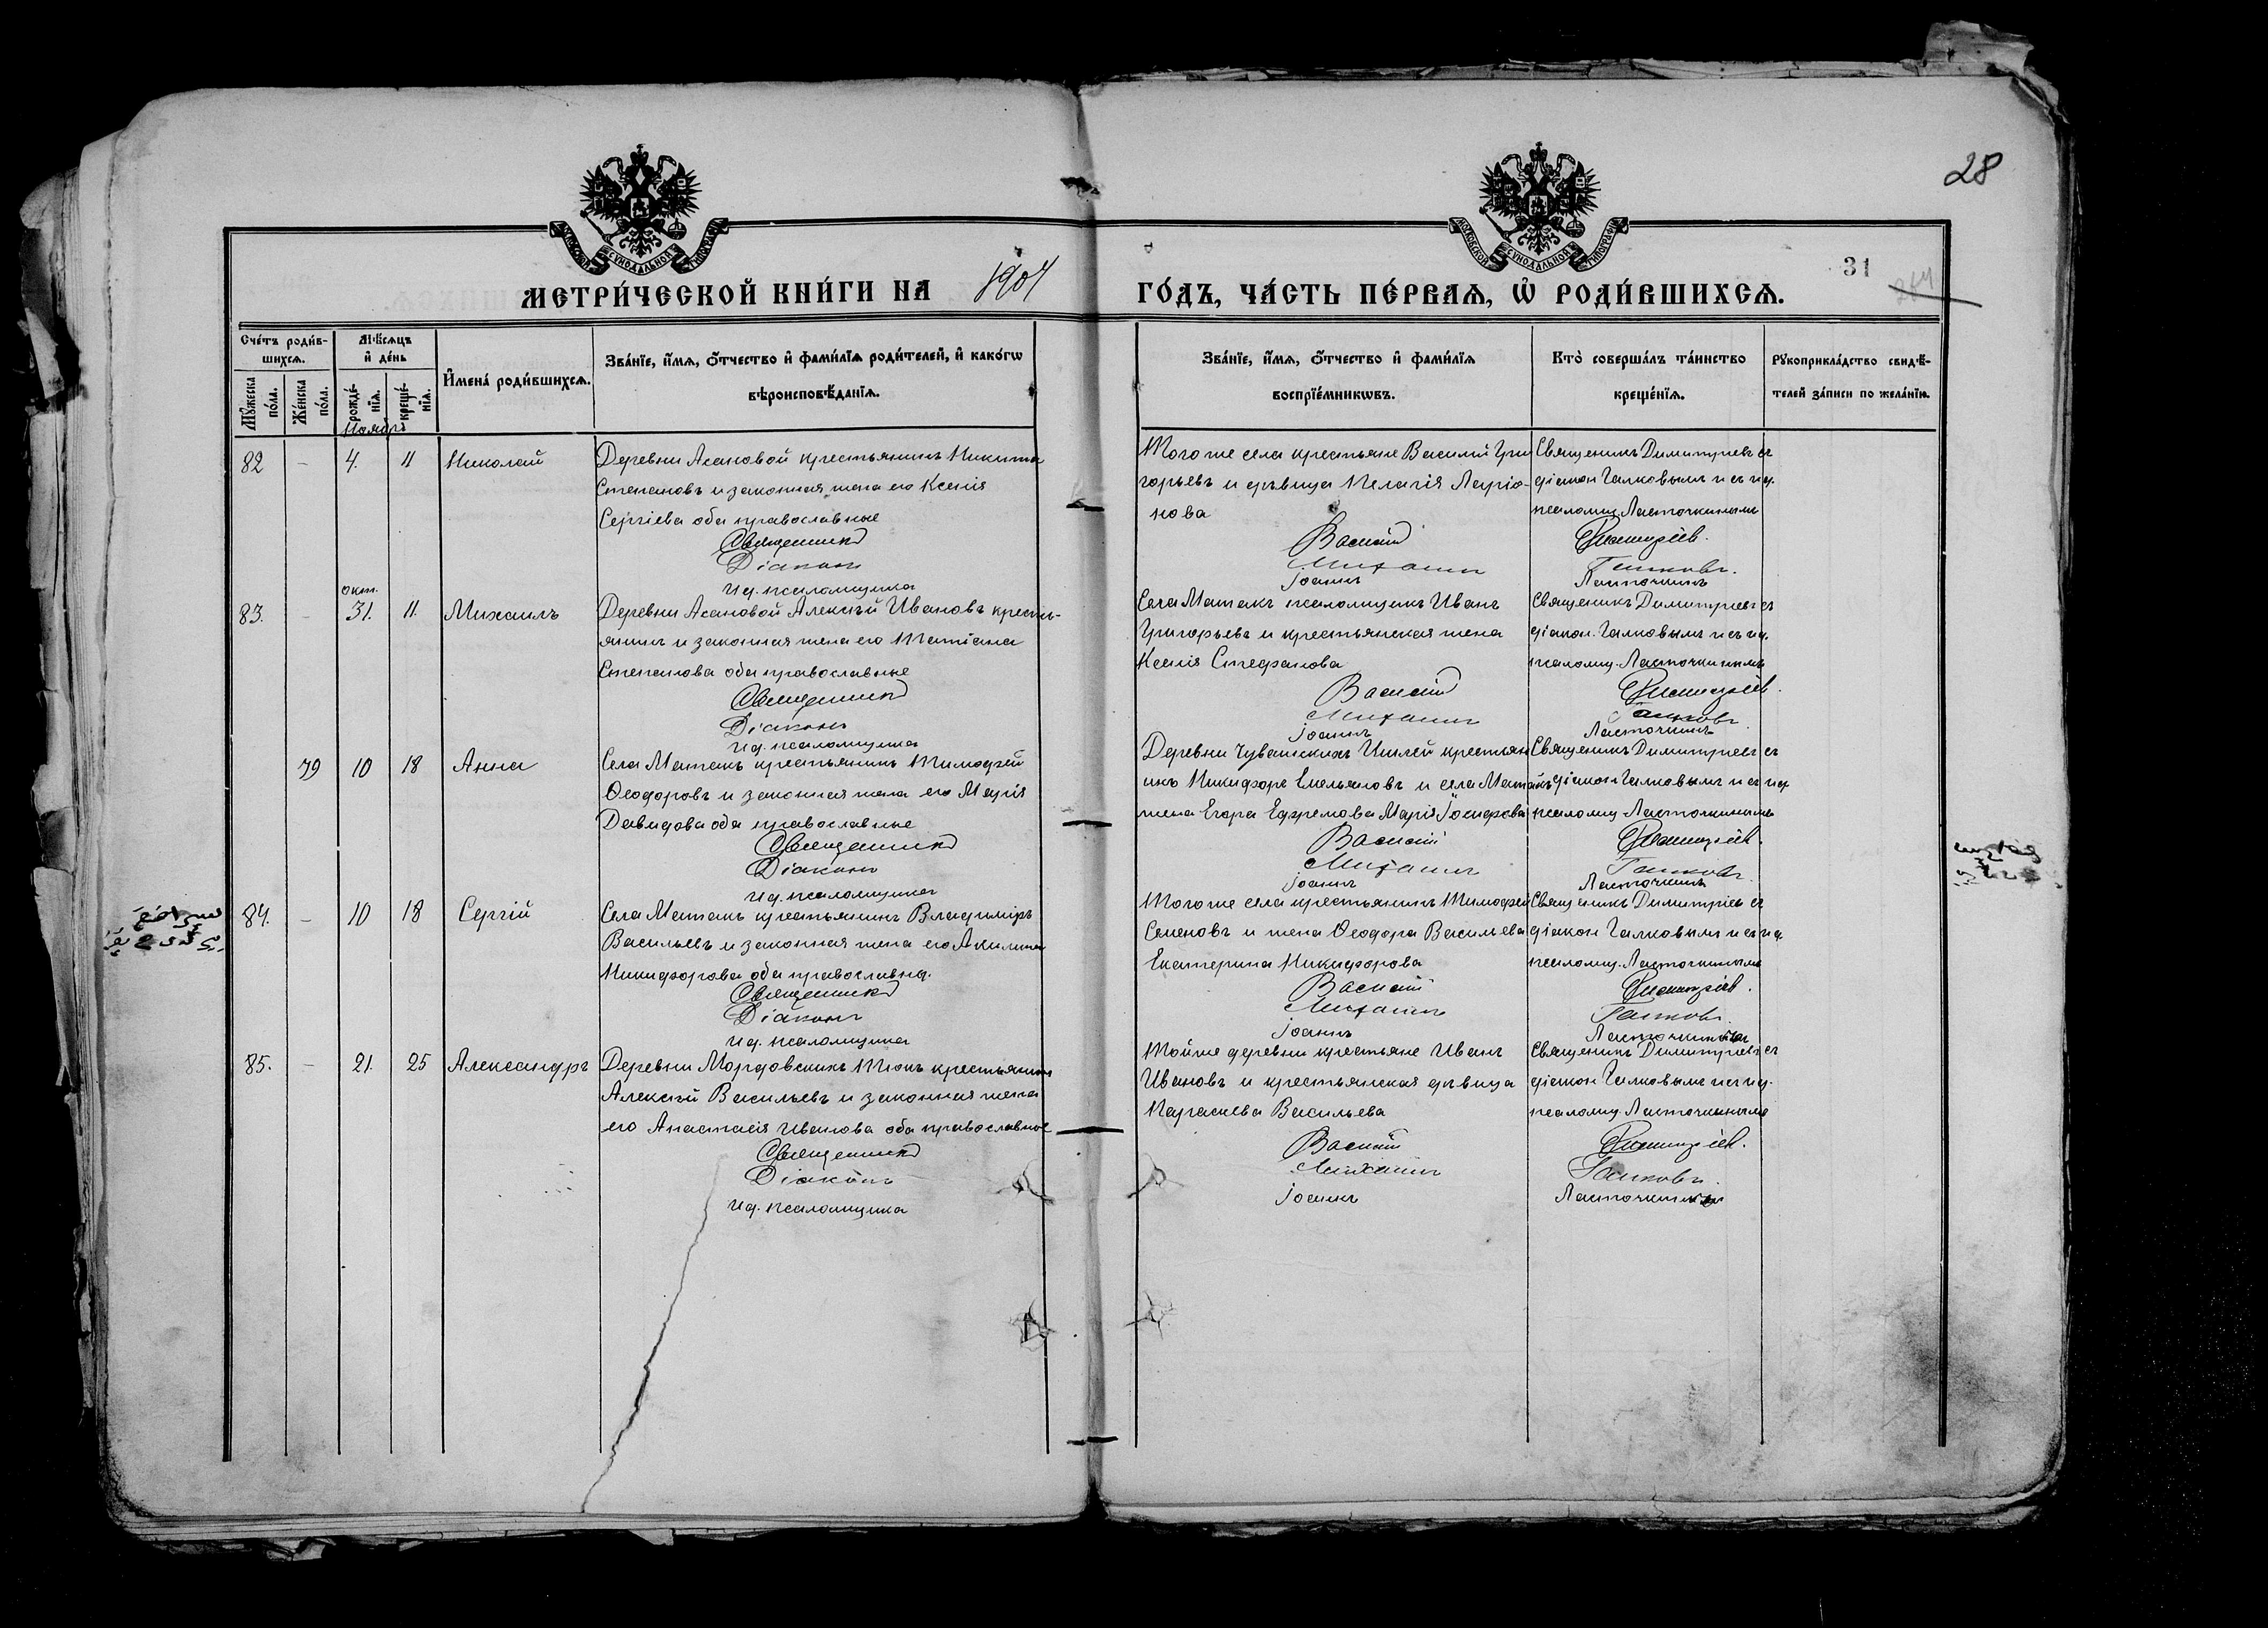 28
31
МОСКОВСКОЙ СУНОДАЛЬНОЙ ТИПОГРАФІИ
МОСКОВСКОЙ СУНОДАЛЬНОЙ ТИПОГРАФІИ
МЕТРИ́ЧЕСКОЙ КНИ́ГИ НА 1904 ГО́ДЪ, ЧА́СТЬ ПЕ́РВАЯ, Ѡ РОДИ́ВШИХСЯ.
Сче́тъ роди́в-
шихся.
Мѣ́сяцъ
и де́нь
Имена́ роди́вшихся.
Зва́нїе, и́мя, о́тчество и фами́лїя роди́телей, и како́гѡ
вѣроисповѣ́данїя.
Зва́нїе, и́мя, о́тчество и фами́лїя
воспрїе́мникѡвъ.
Кто̀ соверша́лъ та́инство
креще́нїя.
Рꙋкоприкла́дство свидѣ́-
телей за́писи по жела́нїю.
Мꙋ́жеска
по́ла.
Же́нска
по́ла.
рожде́-
нїя.
креще́-
нїя.
Ноябрь
82 – 4. 11 Николай
Деревни Асановой крестьянинъ Никита
Степановъ и законная жена его Ксенія
Сергіева оба православные
Священникъ
Діаконъ
И д. псаломщика
Того же села крестьяне Василій Гри
горьевъ и дѣвица Пелагія Ларіо-
нова
Василій
Михаилъ
Іоаннъ
Священникъ Димитріевъ съ
діакон Галковымъ и съ и д.
псаломщ. Ласточкинымъ
Димитріевъ.
Галковъ.
Ласточкинъ
окт.
83. – 31. 11. Михаилъ
Деревни Асановой Алексѣй Ивановъ кресть-
янинъ и законная жена его Татіана
Степанова оба православные
Священникъ
Діаконъ
И д. псаломщика
Села Матакъ псаломщикъ Иванъ
Григорьевъ и крестьянская жена
Ксенія Стефанова
Василій
Михаилъ
Іоаннъ
Священникъ Димитріевъ съ
діакон. Галковымъ и съ и д.
псаломщ. Ласточкинымъ
Димитріевъ.
Галковъ.
Ласточкинъ
79 10 18 Анна
Села Матакъ крестьянинъ Тимофей
Ѳеодоровъ и законная жена его Марія
Давидова оба православные
Священникъ
Діаконъ
И д. псаломщика
Деревни Чувашскихъ Ишлей крестьян
инъ Никифоръ Емельяновъ и села Матакъ
жена Егора Ефремова Марія Іосифова
Василій
Михаилъ
Іоаннъ
Священникъ Димитріевъ съ
діакон Галковымъ и съ и д.
псаломщ. Ласточкинымъ
Димитріевъ.
Галковъ.
Ласточкинъ
84. – 10 18 Сергій
Села Матакъ крестьянинъ Владиміръ
Васильевъ и законная жена его Акилина
Никифорова оба православн.
Священникъ
Діаконъ
И д. псаломщика
Того же села крестьянинъ Тимофей
Семеновъ и жена Ѳеодора Васильева
Екатерина Никифорова
Василій
Михаилъ
Іоаннъ
Священникъ Димитріевъ съ
діакон Галковымъ и съ и д.
псаломщ. Ласточкинымъ
Димитріевъ.
Галковъ.
Ласточкинъ
85. – 21. 25 Александръ
Деревни Мордовскихъ Тюкъ крестьянинъ
Алексѣй Васильевъ и законная жена
его Анастасія Иванова оба православные
Священникъ
Діаконъ
И д. псаломщика
Той же деревни крестьяне Иванъ
Ивановъ и крестьянская дѣвица
Параскева Васильева
Василій
Михаилъ
Іоаннъ
Священникъ Димитріевъ съ
діакон Галковымъ и съ и д.
псаломщ. Ласточкинымъ
Димитріевъ.
Галковъ.
Ласточкинъ